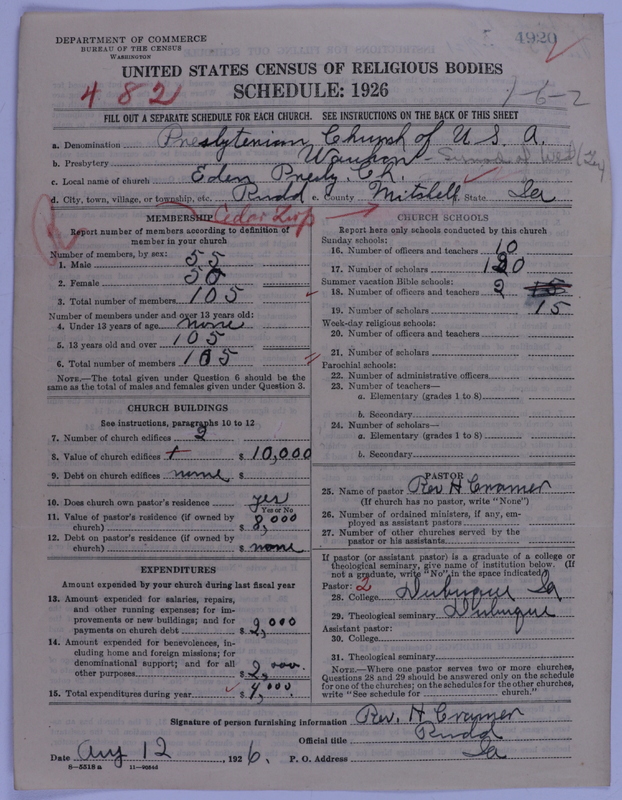 DEPARTMENT OF COMMERCE
BUREAU OF THE CENSUS
WASHINGTON
4920
UNITED STATES CENSUS OF RELIGIOUS BODIES
482 SCHEDULE: 1926 1-6-2
FILL OUT A SEPARATE SCHEDULE FOR EACH CHURCH. SEE INSTRUCTIONS ON THE BACK OF THIS SHEET
a. Denomination Presbyterian Church of U. S. A.
b. Presbytery Waukon
c. Local name of church Eden Presby. Ch.
d. City, town, village, or township, etc. Rudd e. County Mitchell State Ia
MEMBERSHIP Cedar Twp
Report number of members according to definition of
member in your church
Number of members, by sex:
1. Male 55
2. Female 50
3. Total number of members 105
Number of members under and over 13 years old:
4. Under 13 years of age none
5. 13 years old and over 105
6. Total number of members 105
NOTE.—The total given under Question 6 should be the
same as the total of males and females given under Question 3.
CHURCH BUILDINGS
See instructions, paragraphs 10 to 12
7. Number of church edifices 2
8. Value of church edifices 1 $ 10,000
9. Debt on church edifices none $
10. Does church own pastor's residence yes
Yes or No
11. Value of pastor's residence (if owned by
church) $ 8,000
12. Debt on pastor's residence (if owned by
church) $ none
EXPENDITURES
Amount expended by your church during last fiscal year
13. Amount expended for salaries, repairs,
and other running expenses; for im-
provements or new buildings; and for
payments on church debt $ 2,000
14. Amount expended for benevolences, in-
cluding home and foreign missions; for
denominational support; and for all
other purposes $ 2,000.
15. Total expenditures during year $ 4,000.
CHURCH SCHOOLS
Report here only schools conducted by this church
Sunday schools:
16. Number of officers and teachers 10
17. Number of scholars 120
Summer vacation Bible schools:
18. Number of officers and teachers 2 15
19. Number of scholars 15
Week-day religious schools:
20. Number of officers and teachers
21. Number of scholars
Parochial schools:
22. Number of administrative officers
23. Number of teachers—
a. Elementary (grades 1 to 8)
b. Secondary
24. Number of scholars—
a. Elementary (grades 1 to 8)
b. Secondary
PASTOR
25. Name of pastor Rev H Cramer
(If church has no pastor, write "None")
26. Number of ordained ministers, if any, em-
ployed as assistant pastors
27. Number of other churches served by the
pastor or his assistants
If pastor (or assistant pastor) is a graduate of a college or
theological seminary, give name of institution below. (If
not a graduate, write "No" in the space indicated)
Pastor: 2
28. College Dubuque Ia
29. Theological seminary Dubuque
Assistant pastor:
30. College
31. Theological seminary
NOTE.—Where one pastor serves two or more churches,
Questions 28 and 29 should be answered only on the schedule
for one of the churches; on the schedules for the other churches,
write "See schedule for church."
Signature of person furnishing information Rev. H Cramer
Official title Rudd
Date Aug 12, 1926. P. O. Address Ia
8—5518 a 11—9084d